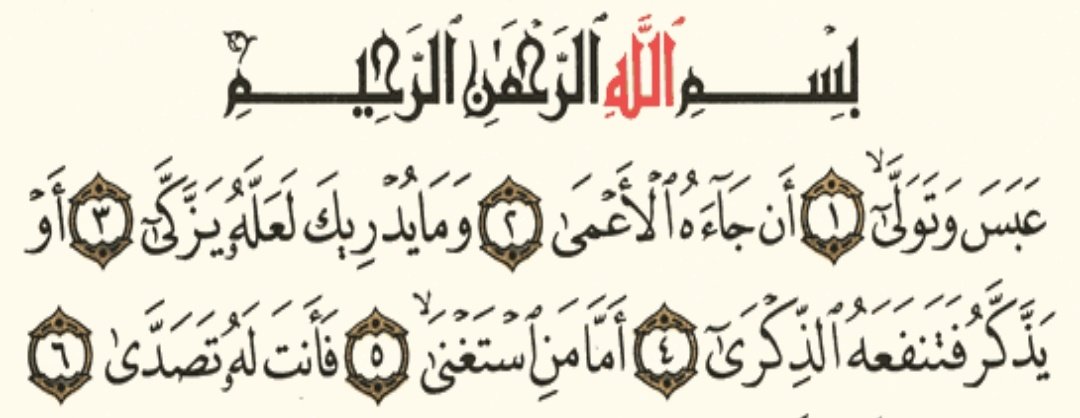 بِسْمِ ٱللَّهِ ٱلرَّحْمَٰنِ ٱلرَّحِيمِ
عَبَسَ وَتَوَلَّىٰٓ ۙ ١ أَن جَآءَهُ ٱلْأَعْمَىٰ ٢ وَمَا يُدْرِيكَ لَعَلَّهُۥ يَزَّكَّىٰٓ ٣ أَوْ
يَذَّكَّرُ فَتَنفَعَهُ ٱلذِّكْرَىٰٓ ٤ أَمَّا مَنِ ٱسْتَغْنَىٰ ۙ ٥ فَأَنتَ لَهُۥ تَصَدَّىٰ ٦